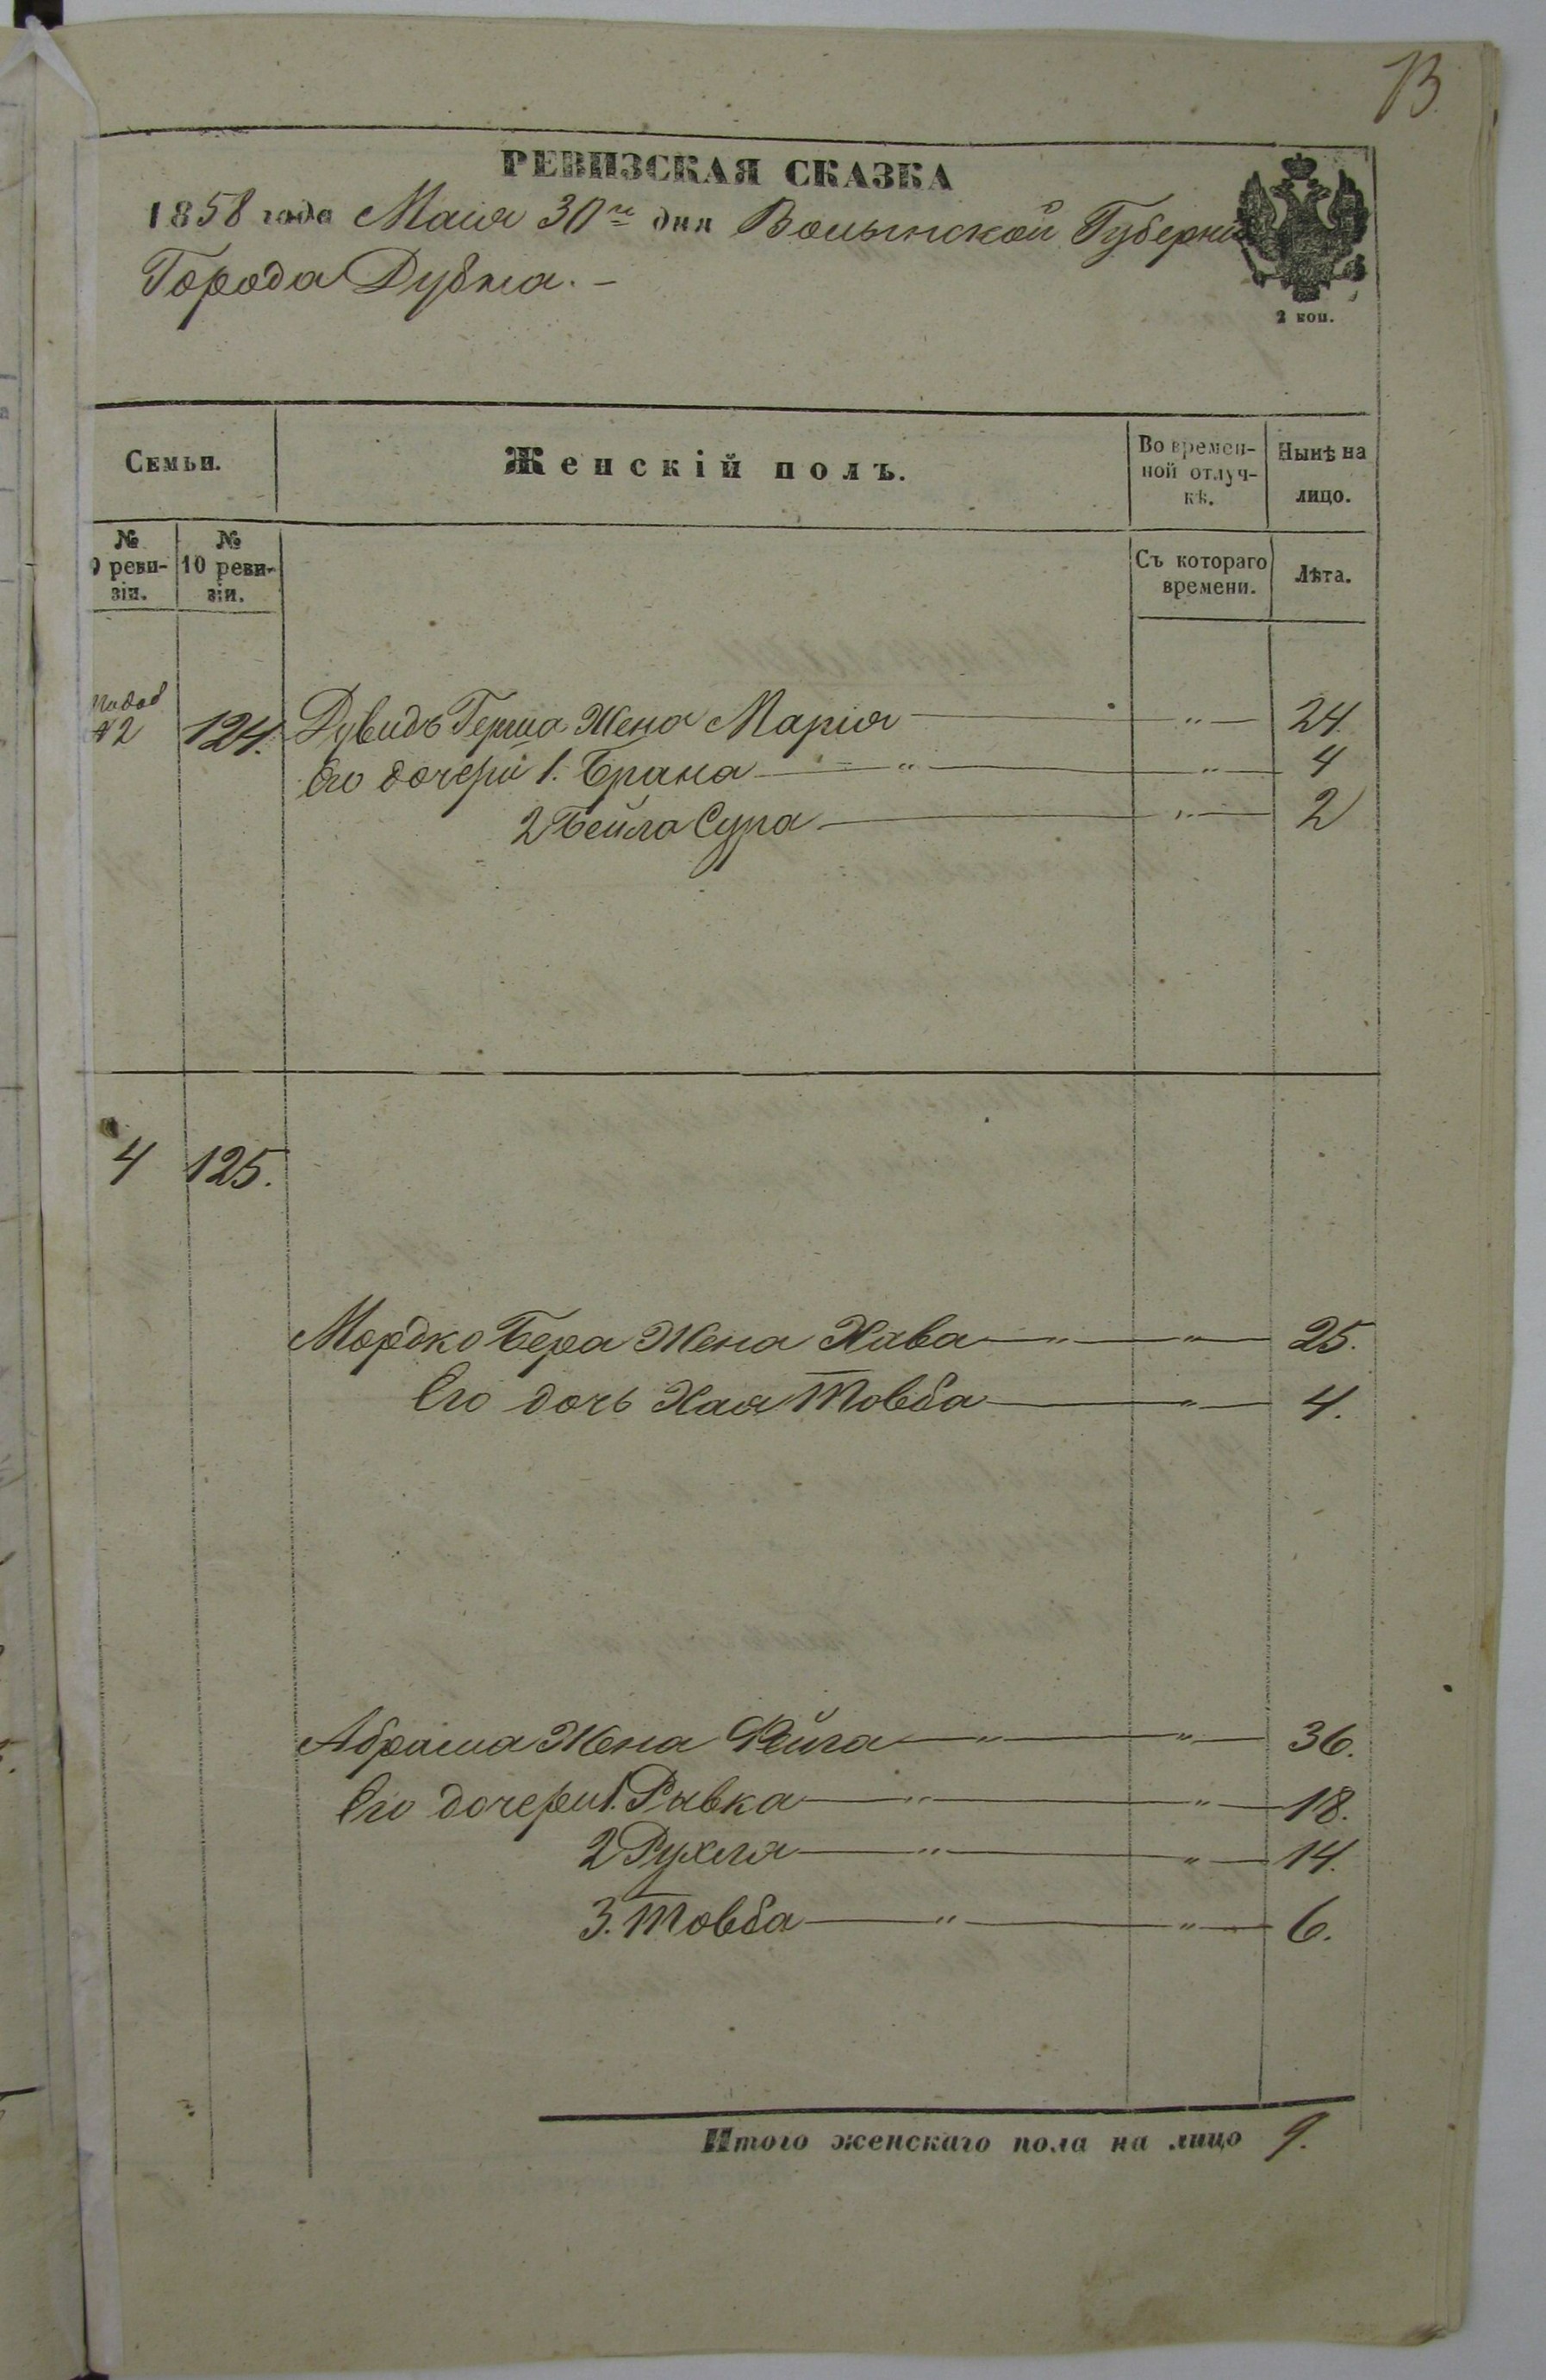 13.
РЕВИЗСКАЯ СКАЗКА
1858 года Маия 30го дня Волынской Губерніи
Города Дубна. -
2 коп.
Семьи.
Женскій полъ.
Во времен-
ной отлуч-
кѣ.
Нынѣ на
лицо.
№
9 реви-
зіи.
№
10 реви-
зіи.
Съ котораго
времени.
Лѣта.
№2 124. Дувидъ Герша Жена Марія " 24.
Его дочери 1. Брана " " 4
2 Бейла Сура " 2
4 125.
Мордко Бера Жена Хава " " 25.
Его дочь Хая Товба " 4.
Абрама Жена Фейга " " 36.
Его дочери 1. Рывка " " 18.
2 Рухля " " 14.
3. Товба " " 6.
Итого женскаго пола на лицо 9.